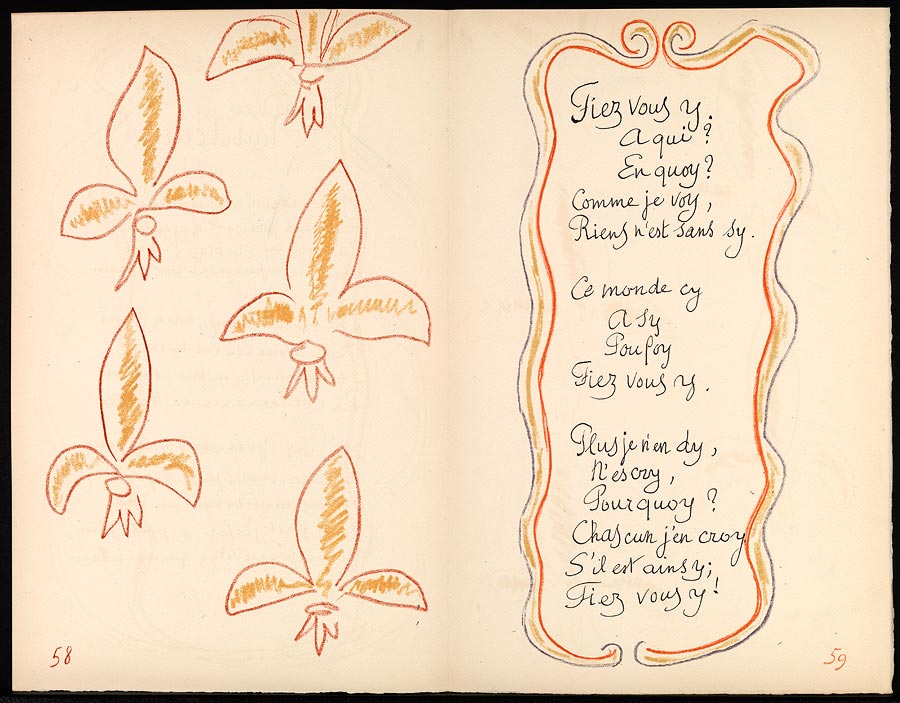 58
Fiez vous y.
A qui ?
En quoy ?
Comme je voy,
Riens n'est sans sy.
Ce monde cy
A sy
Pou foy
Fiez vous y.
Plus je n'en dy,
N'escry,
Pourquoy ?
Chascun j'en croy
S'il est ainsy ;
Fiez vous y !
59